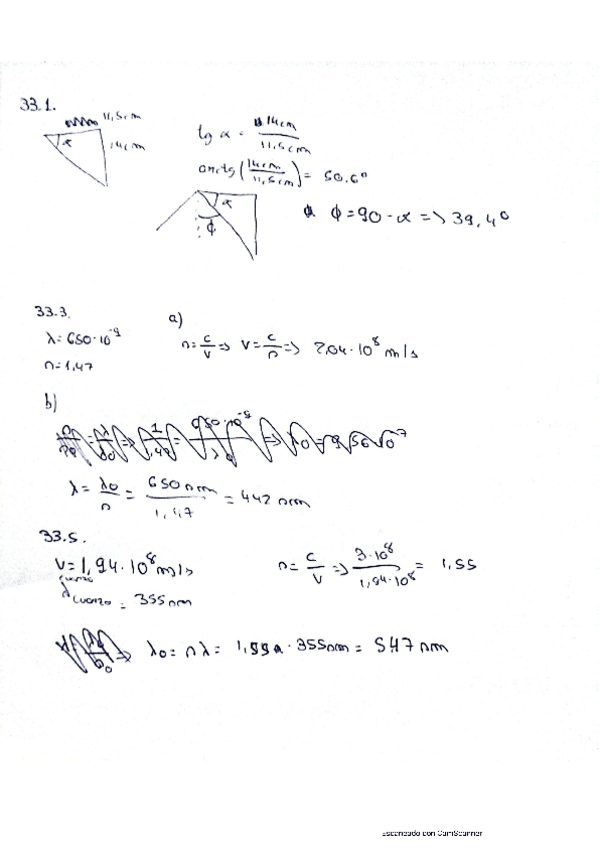 33.1.
11,5cm
14cm
α
tg α = 14cm / 11,5cm
arctg (14cm / 11,5cm) = 50.6°
α
ϕ
ϕ = 90 - α => 39,4°
33.3.
λ = 650·10⁻⁹
n = 1,47
a)
n = c/v => v = c/n => 2,04·10⁸ m/s
b)
λ = λ0/n = 650nm / 1,47 = 442 nm
33.5.
v cuarzo = 1,94·10⁸ m/s
λ cuarzo = 355nm
n = c/v => 3·10⁸ / 1,94·10⁸ = 1,55
λ0 = nλ = 355nm = 547 nm
Escaneado con CamScanner